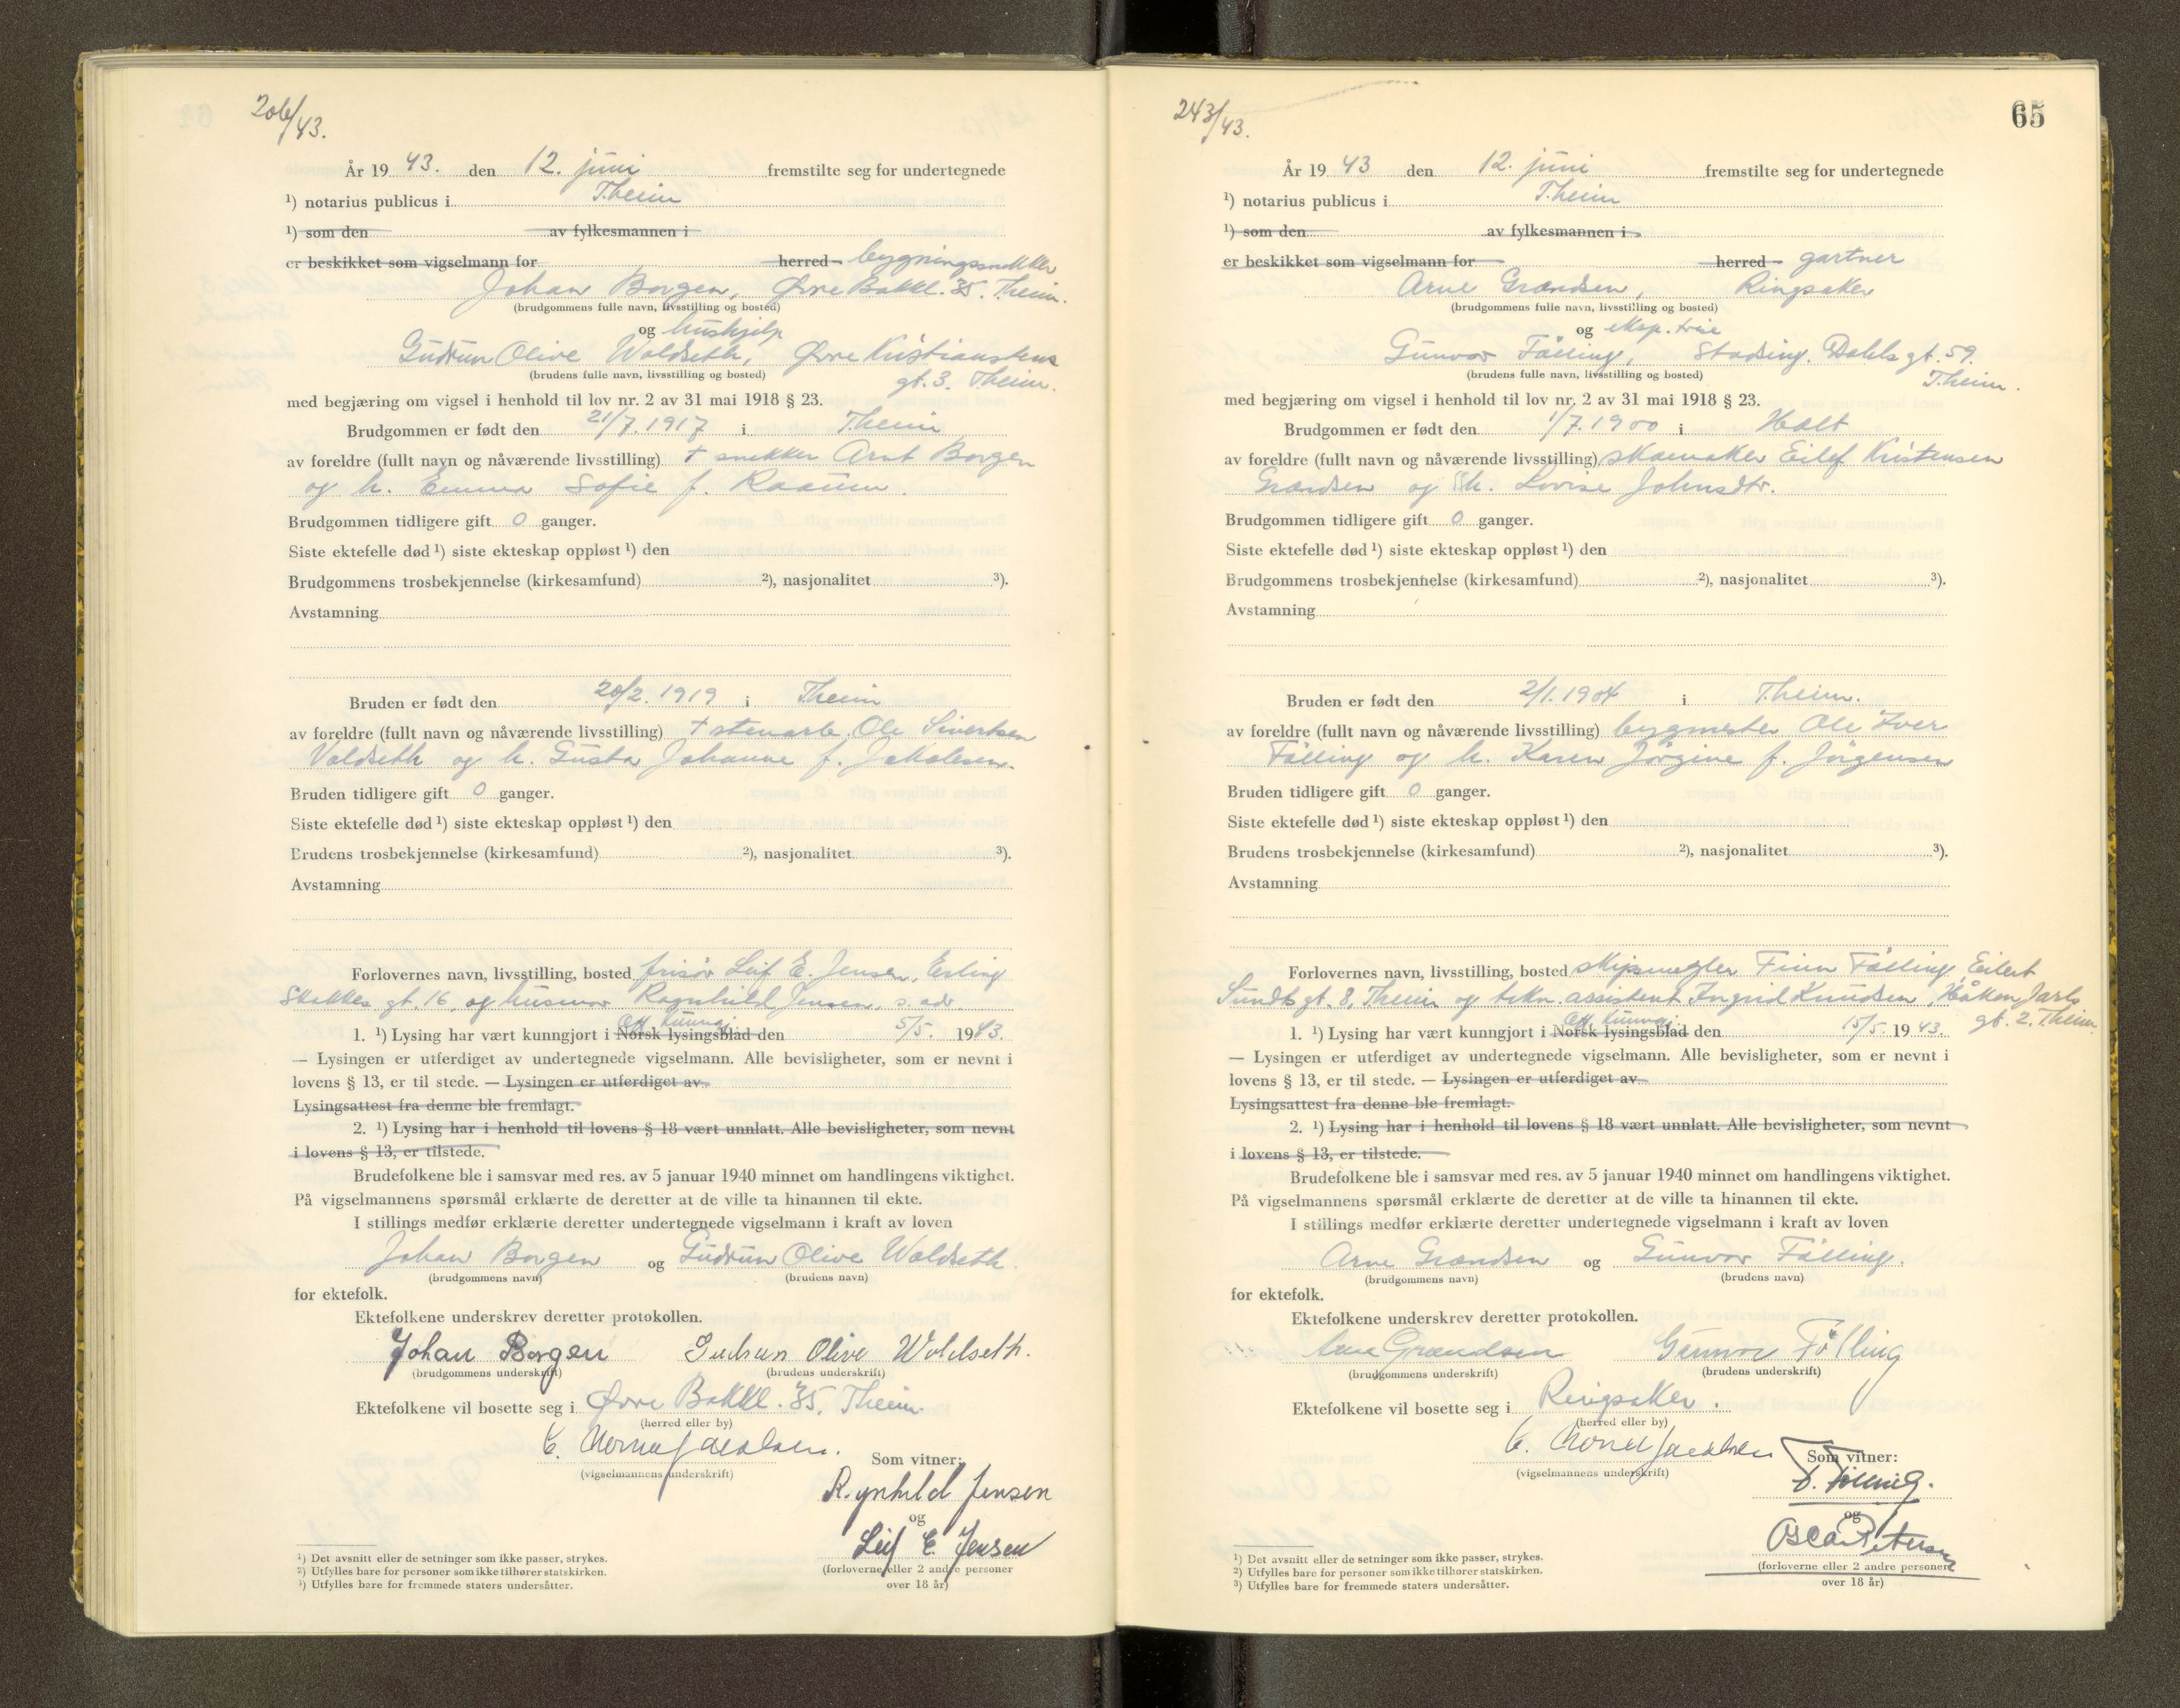 206/43.
År 19 43. den 12. juni fremstilte seg for undertegnede
¹) notarius publicus i Theim
¹) som den av fylkesmannen i
er beskikket som vigselmann for herred bygningssnekker
Johan Borgen, Øvre Bakkl. 35. Theim.
(brudgommens fulle navn, livsstilling og bosted)
og hushjelp
Gudrun Olive Woldseth, Øvre Kristianstens
(brudens fulle navn, livsstilling og bosted) gt. 3. Theim.
med begjæring om vigsel i henhold til lov nr. 2 av 31 mai 1918 § 23.
Brudgommen er født den 21/7. 1917 i Theim
av foreldre (fullt navn og nåværende livsstilling) + snekker Arnt Borgen
og h. Emma Sofie f. Raaum.
Brudgommen tidligere gift 0 ganger.
Siste ektefelle død ¹) siste ekteskap oppløst ¹) den
Brudgommens trosbekjennelse (kirkesamfund) ²), nasjonalitet ³).
Avstamning
Bruden er født den 20/2. 1919 i Theim
av foreldre (fullt navn og nåværende livsstilling) + stenarb. Ole Sivertsen
Voldseth og h. Gusta Johanne f. Jakobsen.
Bruden tidligere gift 0 ganger.
Siste ektefelle død ¹) siste ekteskap oppløst ¹) den
Brudens trosbekjennelse (kirkesamfund) ²), nasjonalitet ³).
Avstamning
Forlovernes navn, livsstilling, bosted frisør Leif E. Jensen, Erling
Skakkes gt. 16, og husmor Ragnhild Jensen, s. adr.
Off. kunngj.
1. ¹) Lysing har vært kunngjort i Norsk lysingsblad den 5/5. 1943.
— Lysingen er utferdiget av undertegnede vigselmann. Alle bevisligheter, som er nevnt i
lovens § 13, er til stede. — Lysingen er utferdiget av
Lysingsattest fra denne ble fremlagt.
2. ¹) Lysing har i henhold til lovens § 18 vært unnlatt. Alle bevisligheter, som nevnt
i lovens § 13, er tilstede.
Brudefolkene ble i samsvar med res. av 5 januar 1940 minnet om handlingens viktighet.
På vigselmannens spørsmål erklærte de deretter at de ville ta hinannen til ekte.
I stillings medfør erklærte deretter undertegnede vigselmann i kraft av loven
Johan Borgen og Gudrun Olive Woldseth.
(brudgommens navn) (brudens navn)
for ektefolk.
Ektefolkene underskrev deretter protokollen.
Johan Borgen Gudrun Olive Woldseth.
(brudgommens underskrift) (brudens underskrift)
Ektefolkene vil bosette seg i Øvre Bakkl. 35, Theim.
(herred eller by)
(vigselmannens underskrift)
Som vitner:
Ragnhild Jensen
og
Leif E. Jensen
(forloverne eller 2 andre personer
over 18 år)
¹) Det avsnitt eller de setninger som ikke passer, strykes.
²) Utfylles bare for personer som ikke tilhører statskirken.
³) Utfylles bare for fremmede staters undersåtter.
243/43.
65
År 19 43 den 12. juni fremstilte seg for undertegnede
¹) notarius publicus i Theim
¹) som den av fylkesmannen i
er beskikket som vigselmann for herred gartner
Arne Grændsen, Ringsaker
(brudgommens fulle navn, livsstilling og bosted)
og eksp. trise
Gunvor Fölling, Stadsing. Dahls gt. 59.
(brudens fulle navn, livsstilling og bosted) Theim.
med begjæring om vigsel i henhold til lov nr. 2 av 31 mai 1918 § 23.
Brudgommen er født den 1/7. 1900 i Holt
av foreldre (fullt navn og nåværende livsstilling) skomaker Eilef Kristensen
Grændsen og h. Lovise Johnsdtr.
Brudgommen tidligere gift 0 ganger.
Siste ektefelle død ¹) siste ekteskap oppløst ¹) den
Brudgommens trosbekjennelse (kirkesamfund) ²), nasjonalitet ³).
Avstamning
Bruden er født den 2/1. 1904 i Theim.
av foreldre (fullt navn og nåværende livsstilling) bygmester Ole Iver
Fölling og h. Karen Jörgine f. Jörgensen
Bruden tidligere gift 0 ganger.
Siste ektefelle død ¹) siste ekteskap oppløst ¹) den
Brudens trosbekjennelse (kirkesamfund) ²), nasjonalitet ³).
Avstamning
Forlovernes navn, livsstilling, bosted skipsmegler Finn Fölling, Eilert
Sundts gt. 8, Theim og tekn. assistent Ingrid Knudsen, Håkon Jarls
gt. 2. Theim.
Off. kunngj.
1. ¹) Lysing har vært kunngjort i Norsk lysingsblad den 15/5. 19 43.
— Lysingen er utferdiget av undertegnede vigselmann. Alle bevisligheter, som er nevnt i
lovens § 13, er til stede. — Lysingen er utferdiget av
Lysingsattest fra denne ble fremlagt.
2. ¹) Lysing har i henhold til lovens § 18 vært unnlatt. Alle bevisligheter, som nevnt
i lovens § 13, er tilstede.
Brudefolkene ble i samsvar med res. av 5 januar 1940 minnet om handlingens viktighet.
På vigselmannens spørsmål erklærte de deretter at de ville ta hinannen til ekte.
I stillings medfør erklærte deretter undertegnede vigselmann i kraft av loven
Arne Grændsen og Gunvor Fölling.
(brudgommens navn) (brudens navn)
for ektefolk.
Ektefolkene underskrev deretter protokollen.
Arne Grændsen Gunvor Fölling
(brudgommens underskrift) (brudens underskrift)
Ektefolkene vil bosette seg i Ringsaker.
(herred eller by)
(vigselmannens underskrift)
Som vitner:
Fölling.
og
Oscar Petersen
(forloverne eller 2 andre personer
over 18 år)
¹) Det avsnitt eller de setninger som ikke passer, strykes.
²) Utfylles bare for personer som ikke tilhører statskirken.
³) Utfylles bare for fremmede staters undersåtter.